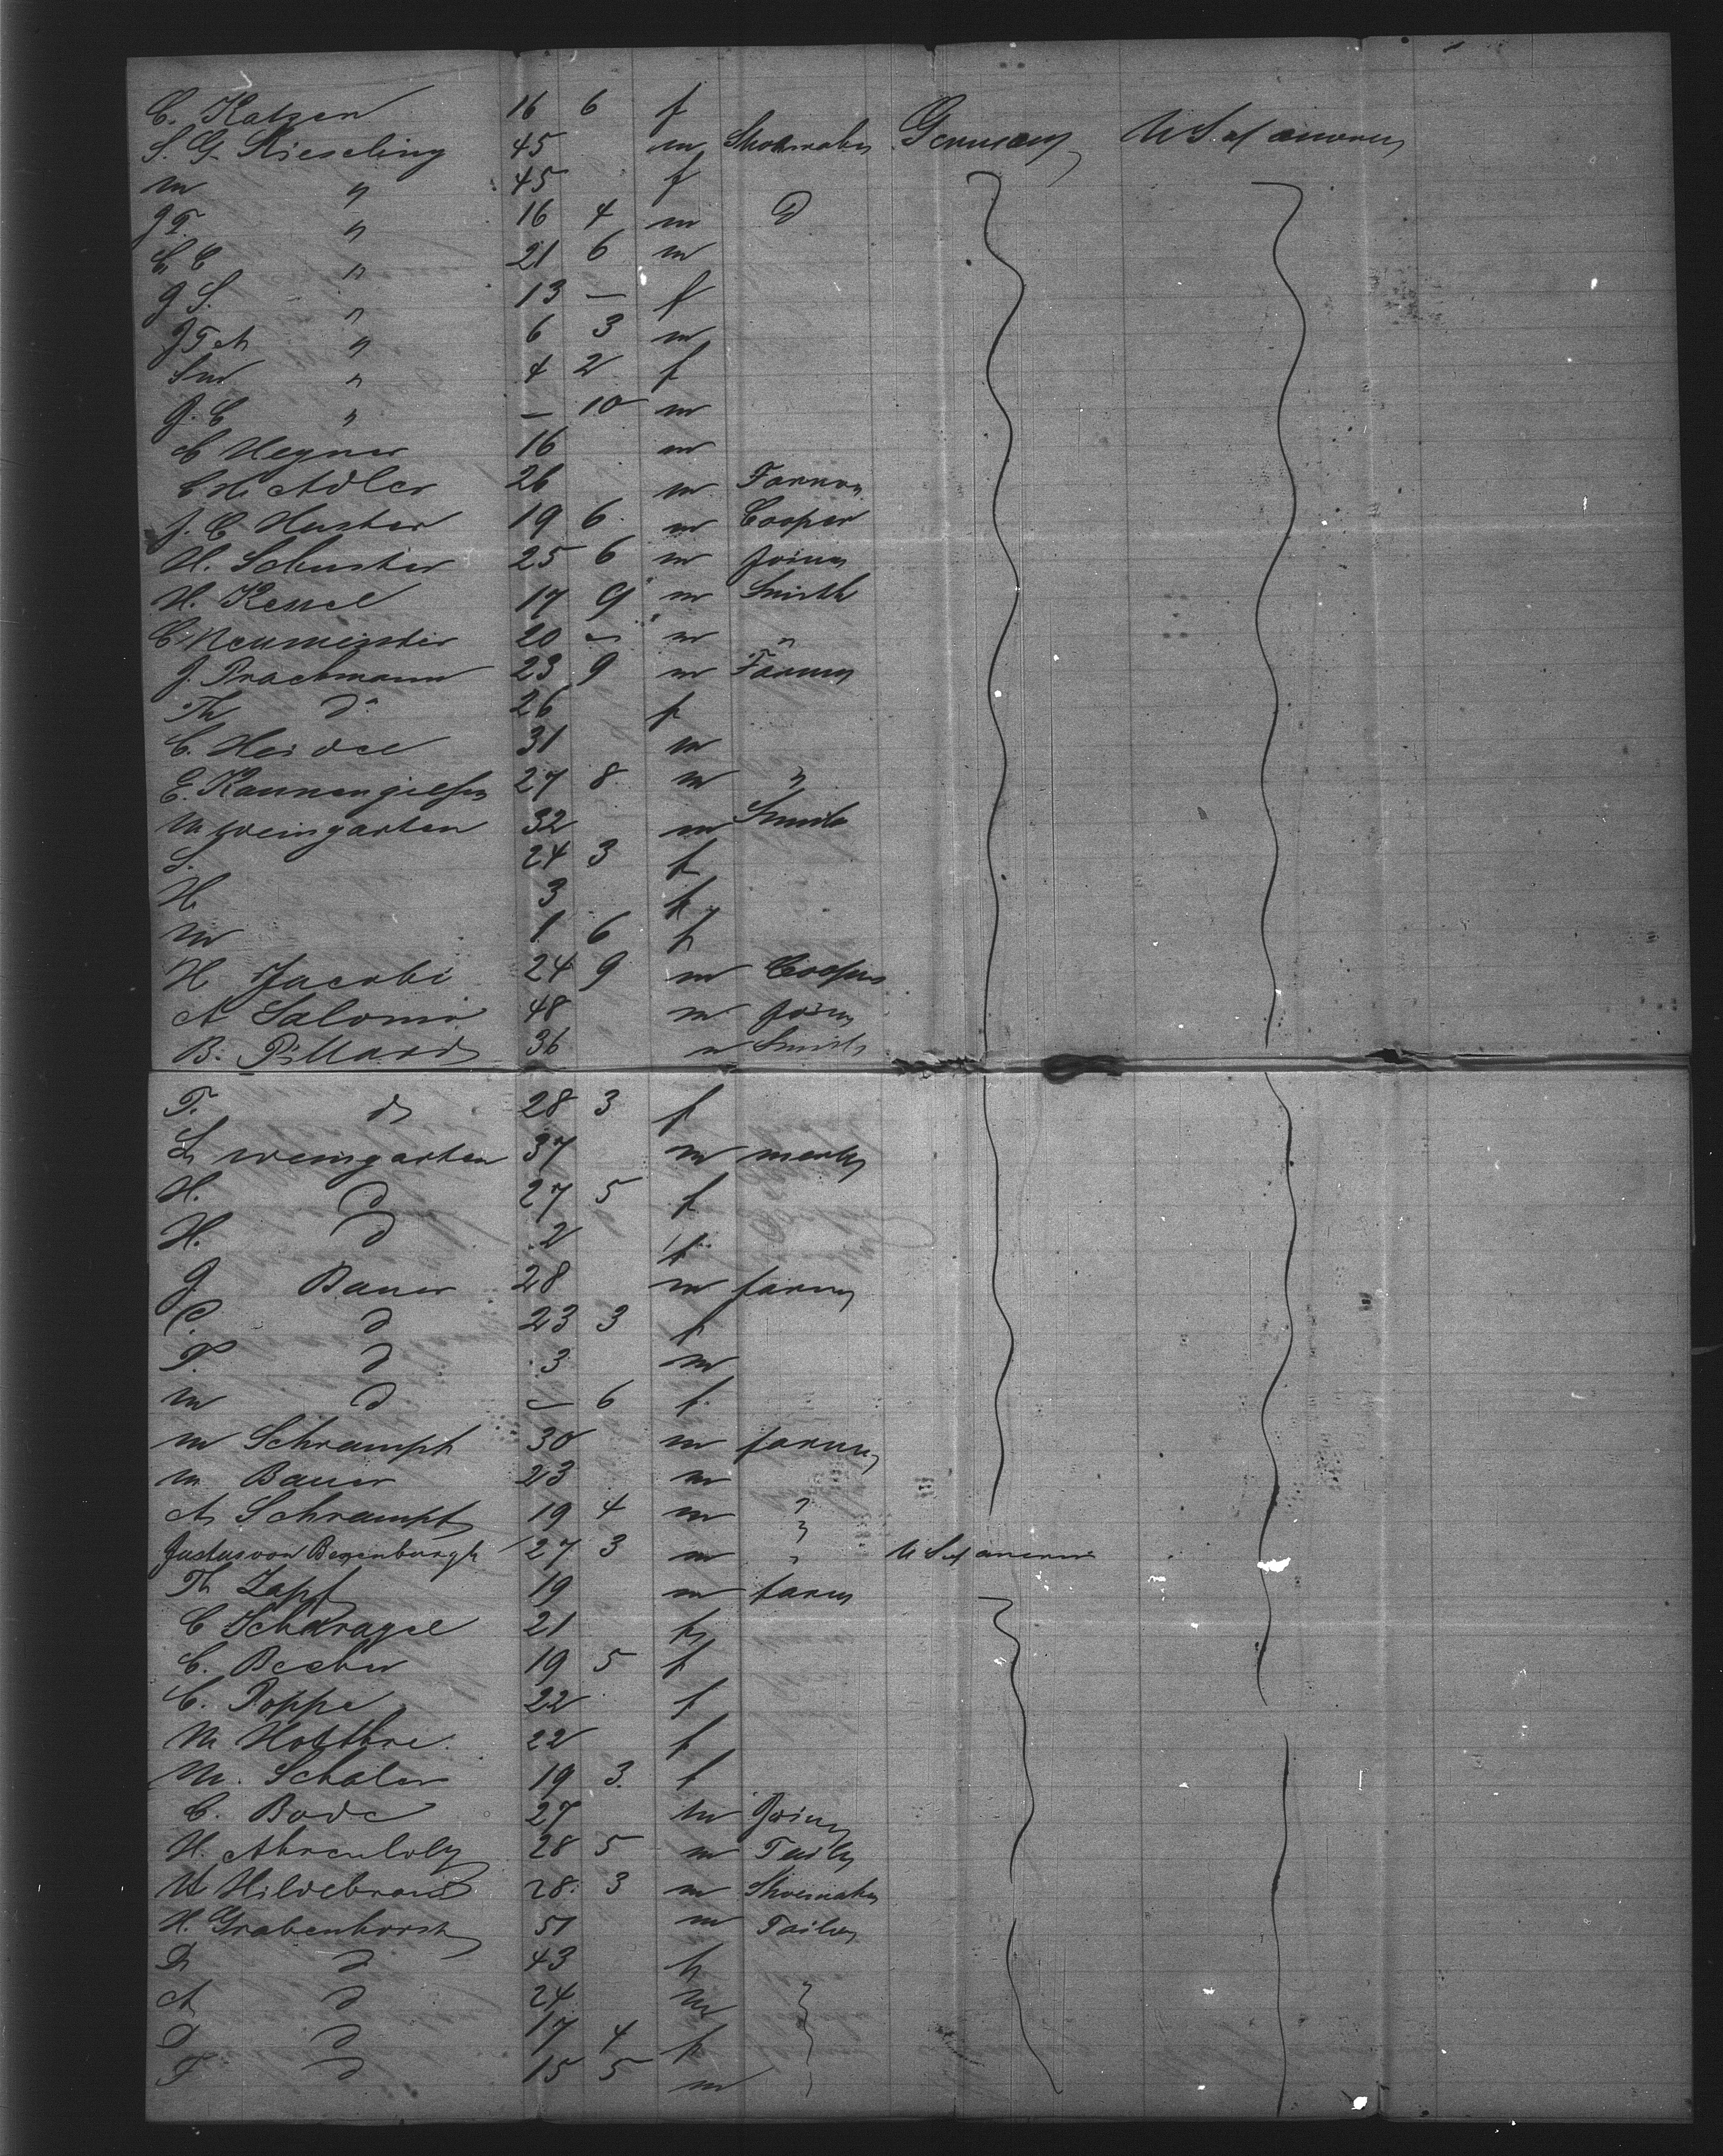 C. Katzen 16 6 f
S. G. Kieseling 45 m Shoemaker Germany U S of America
m " 45 f
J F. " 16 4 m D
C. C " 21 6 m
J S. " 13 — f
J F A " 6 3 m
S m " 4 2 f
J. C " — 10 m
A Wegner 16 m
C H Adler 26 m Farmer
J. C Huster 19 6 m Cooper
H. Schuster 25 6 m Joiner
H. Kessel 17 9 m Smith
C Neumeister 20 — m "
J. Prachmann 23 9 m Farmer
Th do 26 f
C. Heidel 31 m
E. Kannengiesser 27 8 m "
M Weingarten 32 m Smith
S. 24 3 f
H. 3 f
M 1 6 f
H Jacobi 24 9 m Cooper
A Salomo 48 m Joiner
B. Pillard 36 m Smith
T. do 28 3 f
L Weingarten 37 m
H. D 27 5 f
H. D 2 f
J Bauer 28 m farmer
C d 23 3 f
P. d 3 m
M d — 6 f
M Schrampf 30 m farmer
M Bauer 23 m "
A Schrampf 19 4 m "
Justus von Bezenburgh 27 3 m " U S of America
Th Zapf 19 m farmer
C Schwragel 21 f
C. Becker 19 5 f
C. Poppe 22 f
M 22 f
M. Schaler 19 3 f
C. Bode 27 m Joiner
H. 28 5 m Tailor
H Hildebrand 28 3 m Shoemaker
H. Grabenhorst 51 m Tailor
D d 43 f
A d 24 m "
D d 17 4 f "
F d 15 5 m "